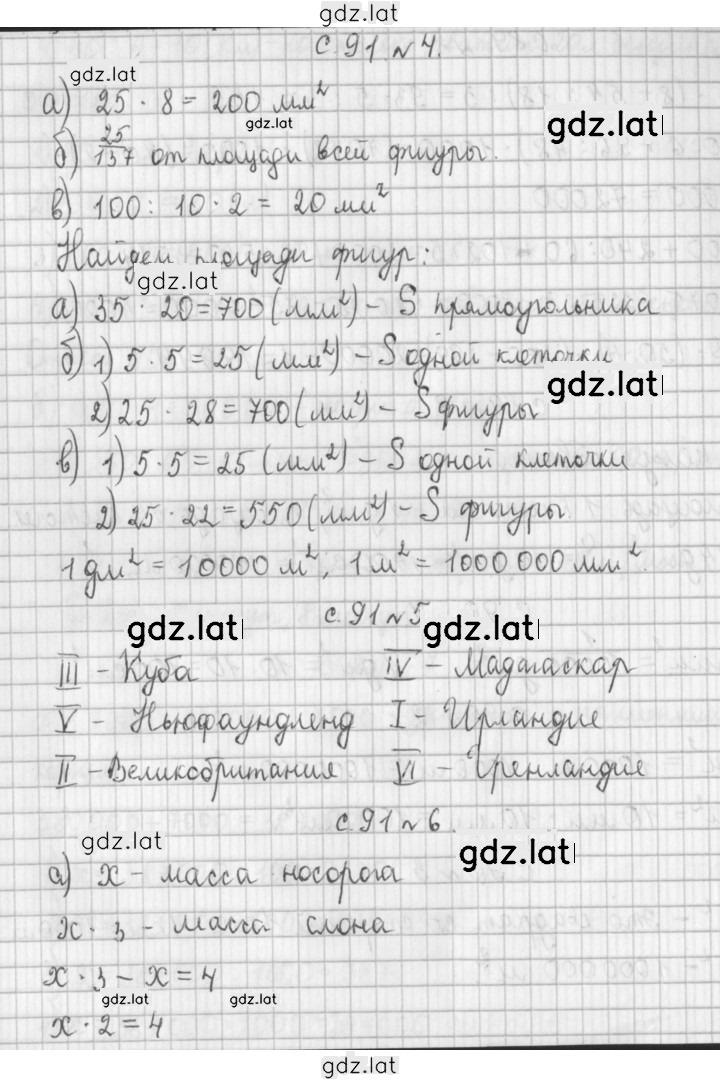 gdz.lat
с. 91 № 4.
gdz.lat
а) 25 · 8 = 200 мм²
gdz.lat
gdz.lat
б) 25/137 от площади всей фигуры.
в) 100 : 10 · 2 = 20 мм²
Найдем площади фигур:
gdz.lat
а) 35 · 20 = 700 (мм²) – S прямоугольника
б) 1) 5 · 5 = 25 (мм²) – S одной клеточки
gdz.lat
2) 25 · 28 = 700 (мм²) – S фигуры
в) 1) 5 · 5 = 25 (мм²) – S одной клеточки
2) 25 · 22 = 550 (мм²) – S фигуры.
1 дм² = 10000 м², 1 м² = 1000 000 мм².
с. 91 № 5
gdz.lat
gdz.lat
III – Куба IV – Мадагаскар
V – Ньюфаундленд I – Ирландие
II – Великобритания VI – Гренландие
с. 91 № 6.
gdz.lat
gdz.lat
а) x – масса носорога
x · 3 – масса слона
x · 3 – x = 4
gdz.lat
gdz.lat
x · 2 = 4
gdz.lat